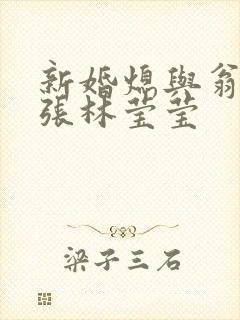 新婚熄與翁
張林莹莹
梁子三石